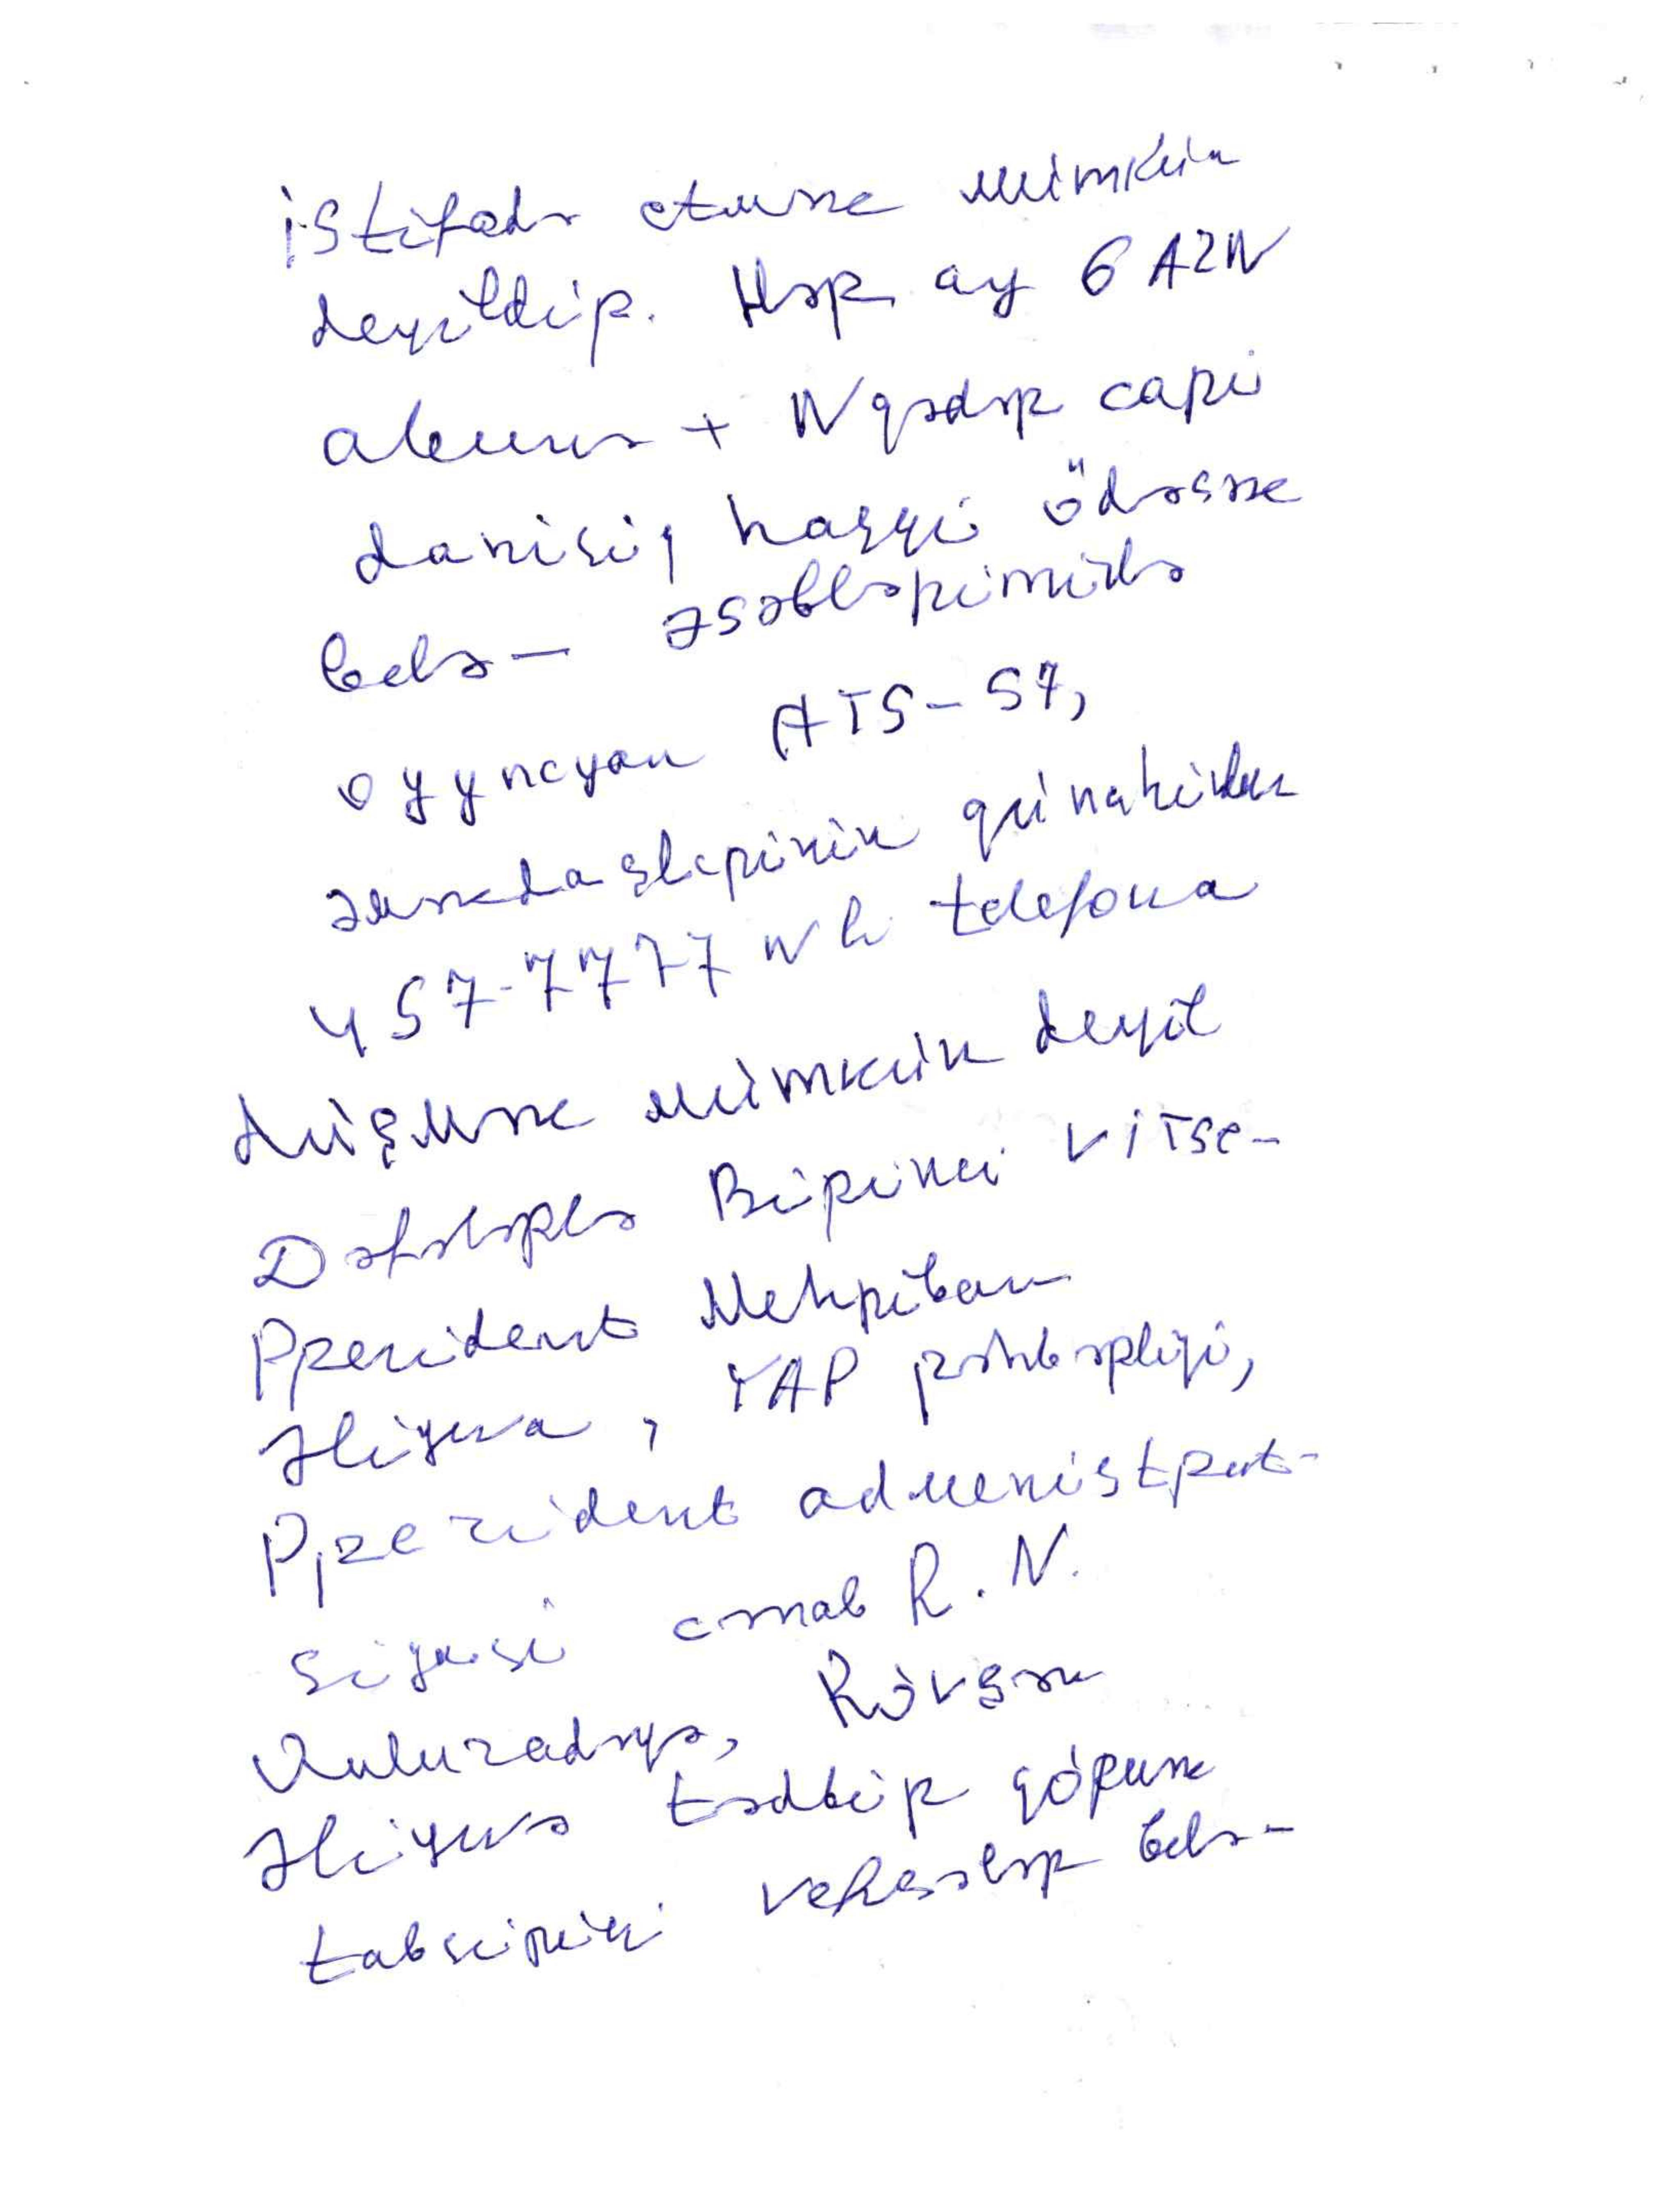 istifadə etmək mümkün
deyildir. Hər ay 6 AZN
abunə + N qədər cari
danışıq haqqı ödəsək
belə - əsəblərimizlə
oyynayan ATS-57,
əməkdaşlarının günahından
457-7777 №li telefona
düşmək mümkün deyil
Dəfələrlə Birinci vitse-
Prezident Mehriban
Əliyeva, YAP rəhbərliyi,
Prezident administrat-
siyası cənab R. N.
Vuluzadəyə, Rövşən
Əliyevə tədbir görmək
tabşırığı versələr belə-